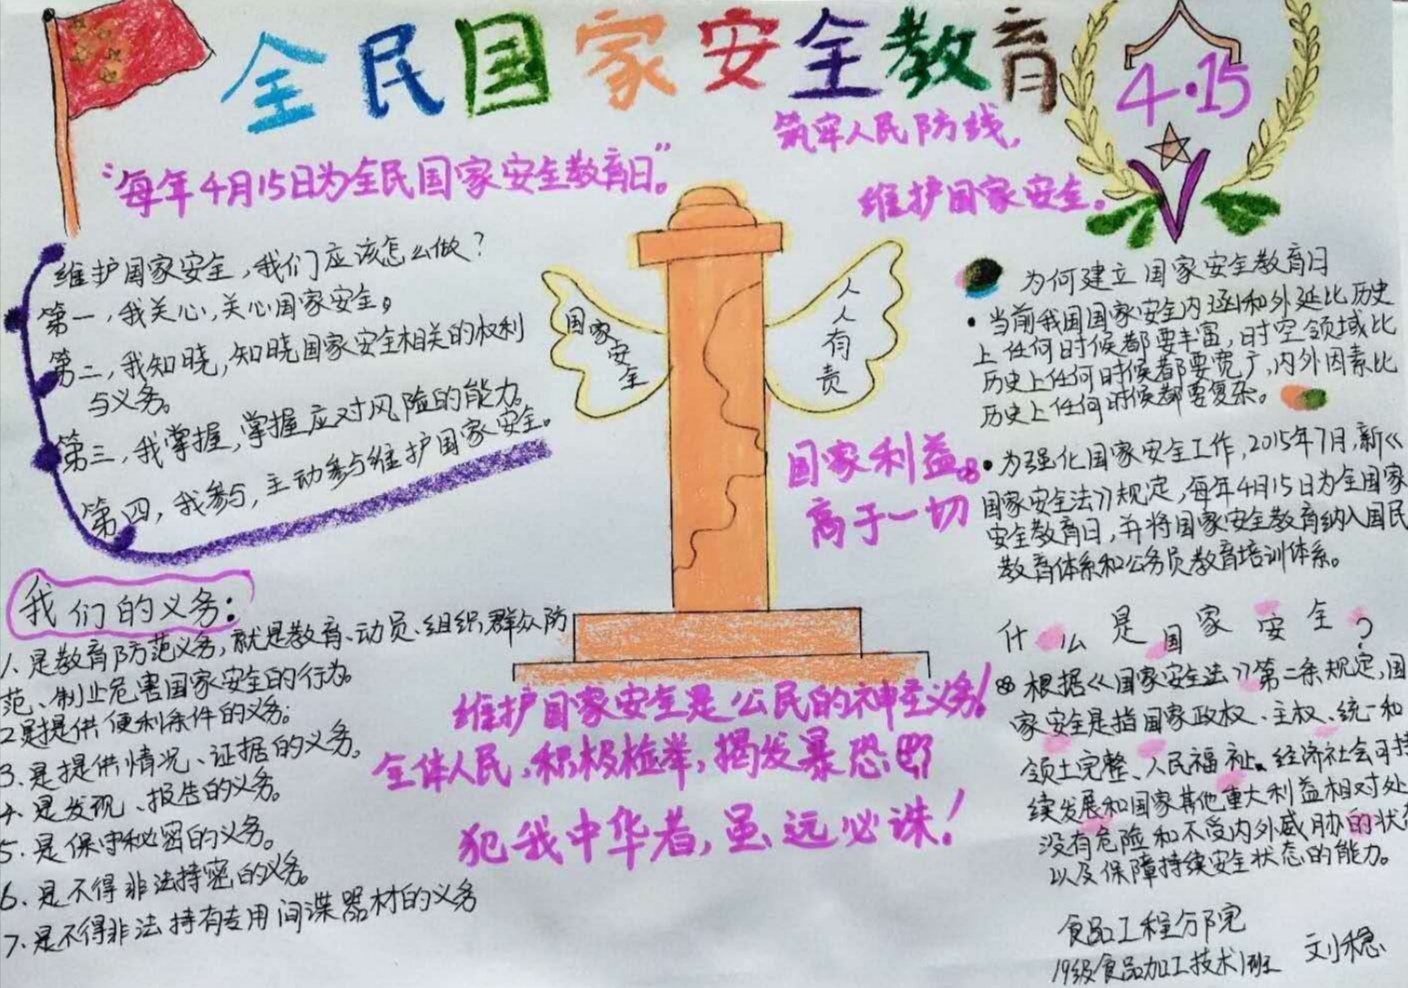 全民国家安全教育
4·15
筑牢人民防线，
维护国家安全。
“每年4月15日为全民国家安全教育日”。
维护国家安全，我们应该怎么做？
第一，我关心，关心国家安全。
第二，我知晓，知晓国家安全相关的权利
与义务。
第三，我掌握，掌握应对风险的能力。
第四，我参与，主动参与维护国家安全。
我们的义务：
1.是教育防范义务，就是教育、动员、组织群众防
范、制止危害国家安全的行为。
2是提供便利条件的义务；
3.是提供情况、证据的义务。
4.是发现、报告的义务。
5.是保守秘密的义务。
6.是不得非法持密的义务。
7.是不得非法持有专用间谍器材的义务
国家安全
人人有责
国家利益
高于一切
维护国家安全是公民的神圣义务！
全体人民，积极检举，揭发暴恐
犯我中华者，虽远必诛！
为何建立国家安全教育日
·当前我国国家安全内涵和外延比历史
上任何时候都要丰富，时空领域比
历史上任何时候都要宽广，内外因素比
历史上任何时候都要复杂。
·为强化国家安全工作，2015年7月，新《
国家安全法》规定，每年4月15日为全国家
安全教育日，并将国家安全教育纳入国民
教育体系和公务员教育培训体系。
什么是国家安全？
根据《国家安全法》第二条规定，国
家安全是指国家政权、主权、统一和
领土完整、人民福祉、经济社会可持
续发展和国家其他重大利益相对处
没有危险和不受内外威胁的状态
以及保障持续安全状态的能力。
食品工程分院
19级食品加工技术1班 刘稳